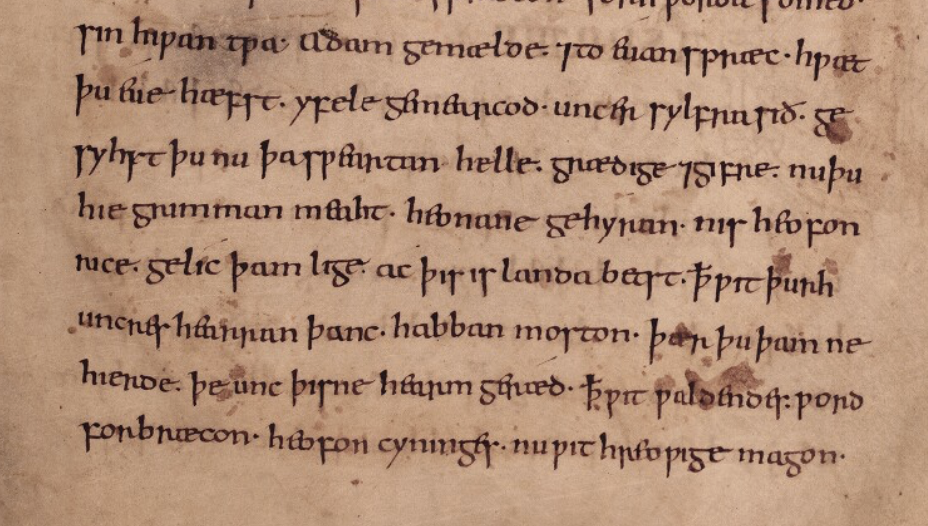 sin hiƿan tƿa· Adam gemælde· ⁊to euan spræc· hƿæt
þu eue hæfst· yfele gemearcod· uncer sylfra sið· ge
syhst þu nu þa sƿeartan helle· grædige ⁊gifre· nu þu
hie grimman meaht· heonane gehyran· nis heofon
rice· gelic þam lige· ac þis is landa betst· ꝥ ƿit þurh
uncres hearran þanc· habban moston· þær þu þam ne
hierde· þe unc þisne hearm geræd· ꝥ ƿit ƿaldendes· ƿord
forbræcon· heofon cyninges· nu ƿit hreoƿige magon·